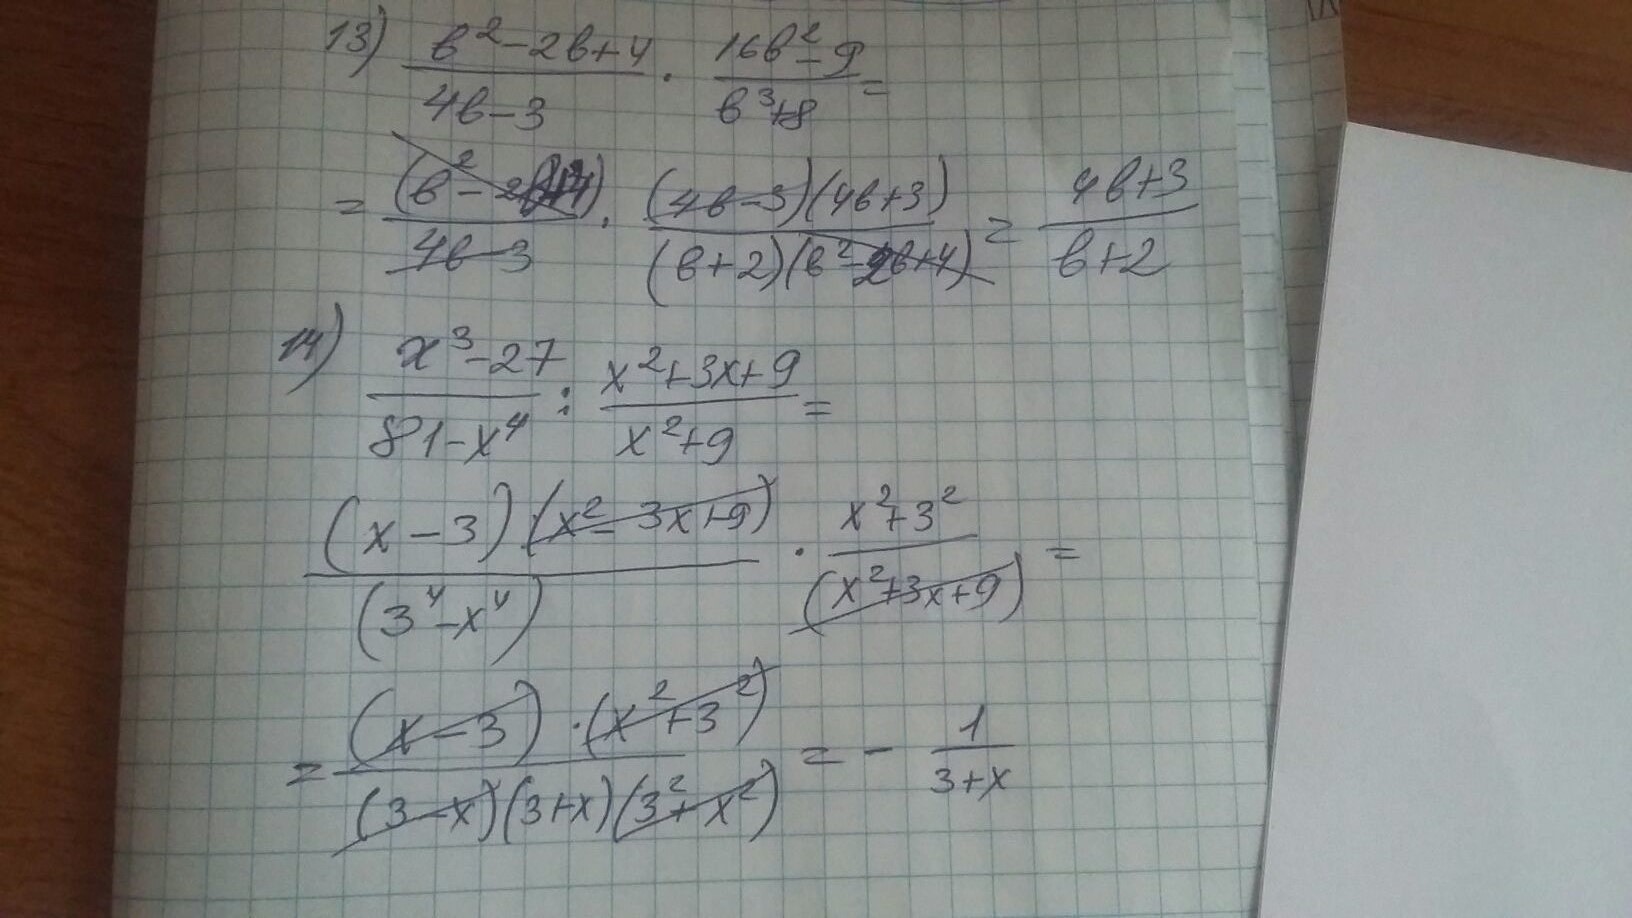 13) (в²-2в+4)/(4в-3) · (16в²-9)/(в³+8) =
= (в²-2в+4)/(4в-3) · (4в-3)(4в+3)/(в+2)(в²-2в+4) = (4в+3)/(в+2)
14) (x³-27)/(81-x⁴) : (x²+3x+9)/(x²+9) =
(x-3)·(x²-3x+9)/(3⁴-x⁴) · (x²+3²)/(x²+3x+9) =
= (x-3)·(x²+3²)/(3-x)(3+x)(3²+x²) = - 1/(3+x)